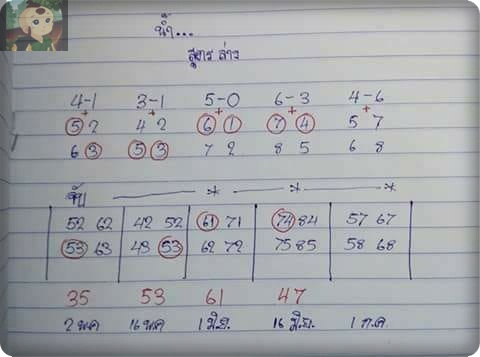 น้ำ...
สูตร ล่าง
4-1 3-1 5-0 6-3 4-6
+ + + + +
5 2 4 2 6 1 7 4 5 7
6 3 5 3 7 2 8 5 6 8
จับ * * *
52 62 42 52 61 71 74 84 57 67
53 63 43 53 62 72 75 85 58 68
35 53 61 47
2 พค 16 พค 1 มิ.ย. 16 มิ.ย. 1 ก.ค.